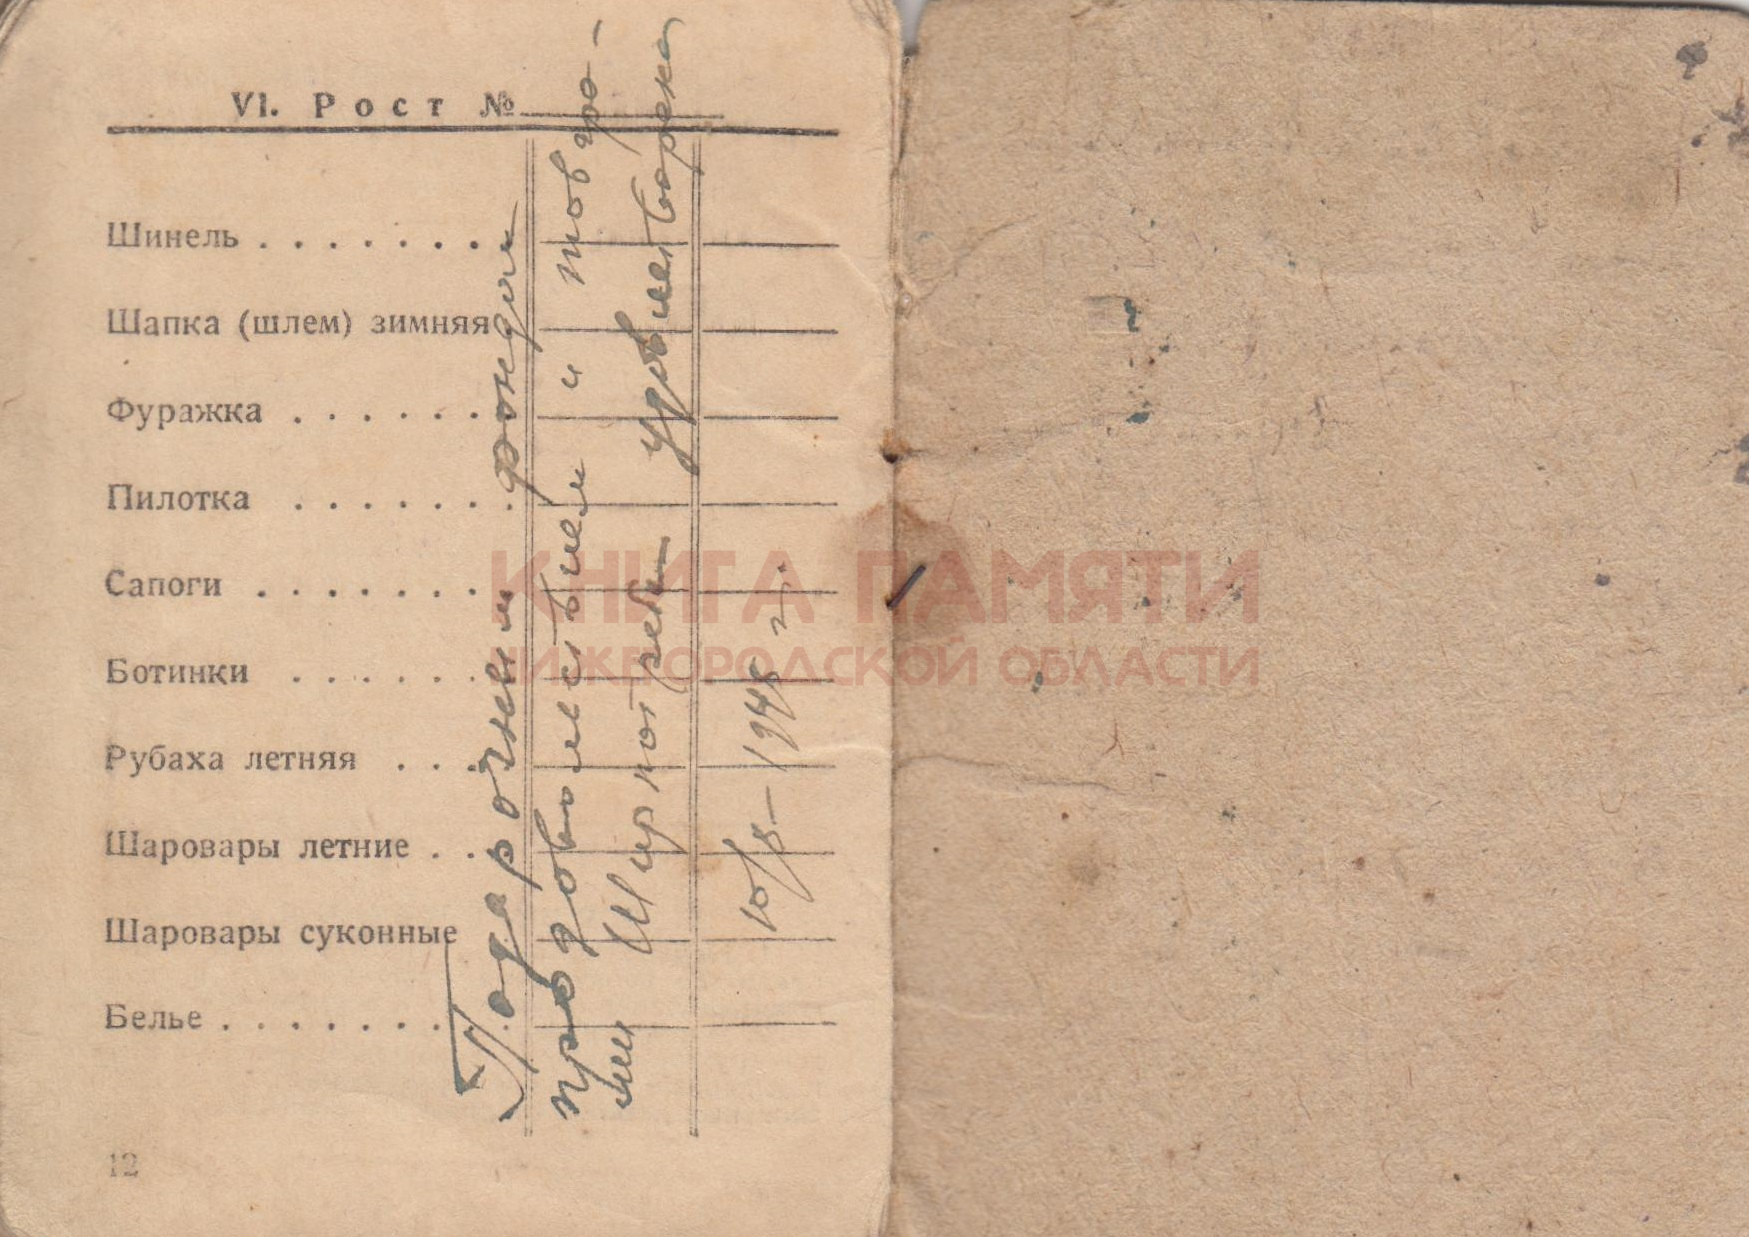 VI. Рост №
Шинель
Шапка (шлем) зимняя
Фуражка
Пилотка
Сапоги
Ботинки
Рубаха летняя
Шаровары летние
Шаровары суконные
Белье
12
Подарочным фондом
продовольствием и пов
ми Ширпотреба удовлетворена
10/8-1945 г.
КНИГА ПАМЯТИ
НИЖЕГОРОДСКОЙ ОБЛАСТИ